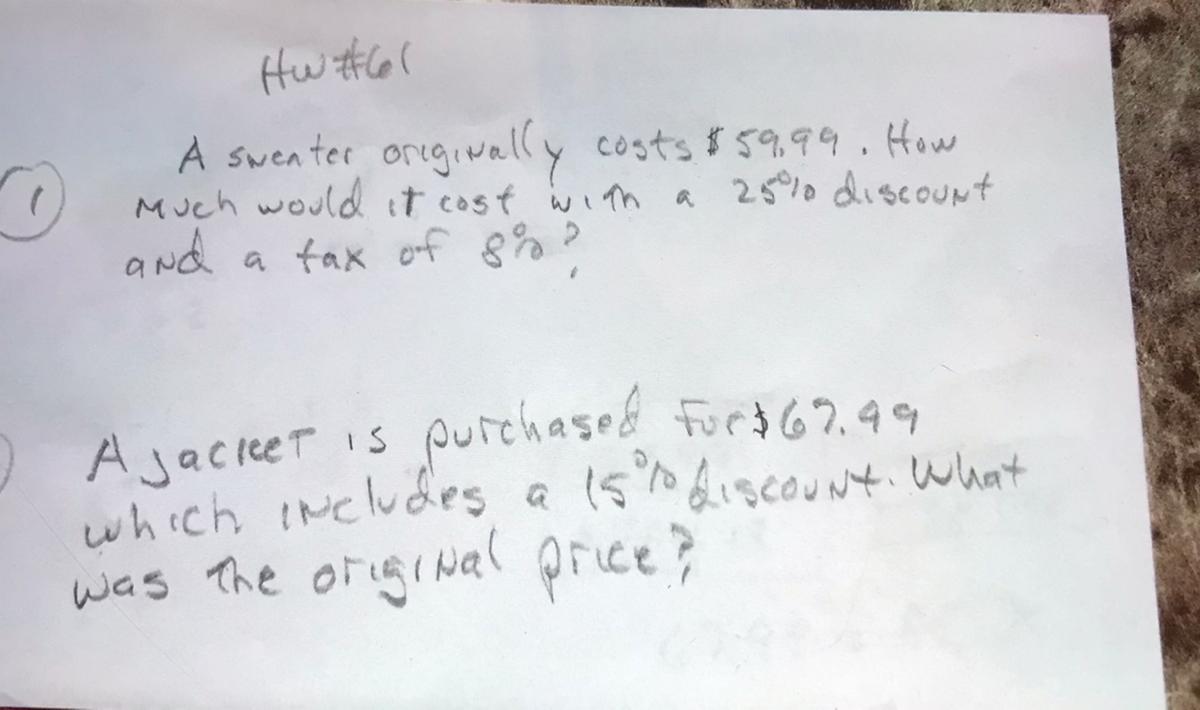 HW #61
A sweater originally costs $59.99. How
①
much would it cost with a 25% discount
and a tax of 8%?
A jacket is purchased for $67.99
which includes a 15% discount. What
was the original price?